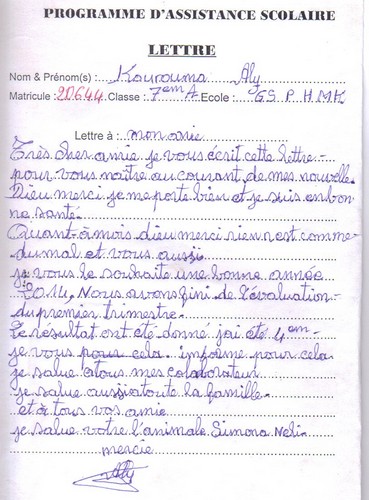 PROGRAMME D'ASSISTANCE SCOLAIRE
LETTRE
Nom & Prénom(s) : Kourouma Aly
Matricule : 20644 Classe : 7em A Ecole : GS P H M K
Lettre à : mon amie
Très cher amie je vous écrit cette lettre
pour vous maître au courant de mes nouvelle
Dieu merci je me porte bien et je suis en bon
ne santé
Quant à mois dieu merci rien n'est comme
du mal et vous aussi
je vous le souhaite une bonne année
2014. Nous avons fini de l'évaluation
du premier trimestre
le résultat ont été donné jai été 4em
je vous pour cela informe pour cela
je salue a tous mes colaborateur
je salue aussi a toute la famille
et à tous vos amie
je salue votre l'animale Simona Neli
mercie
Aly